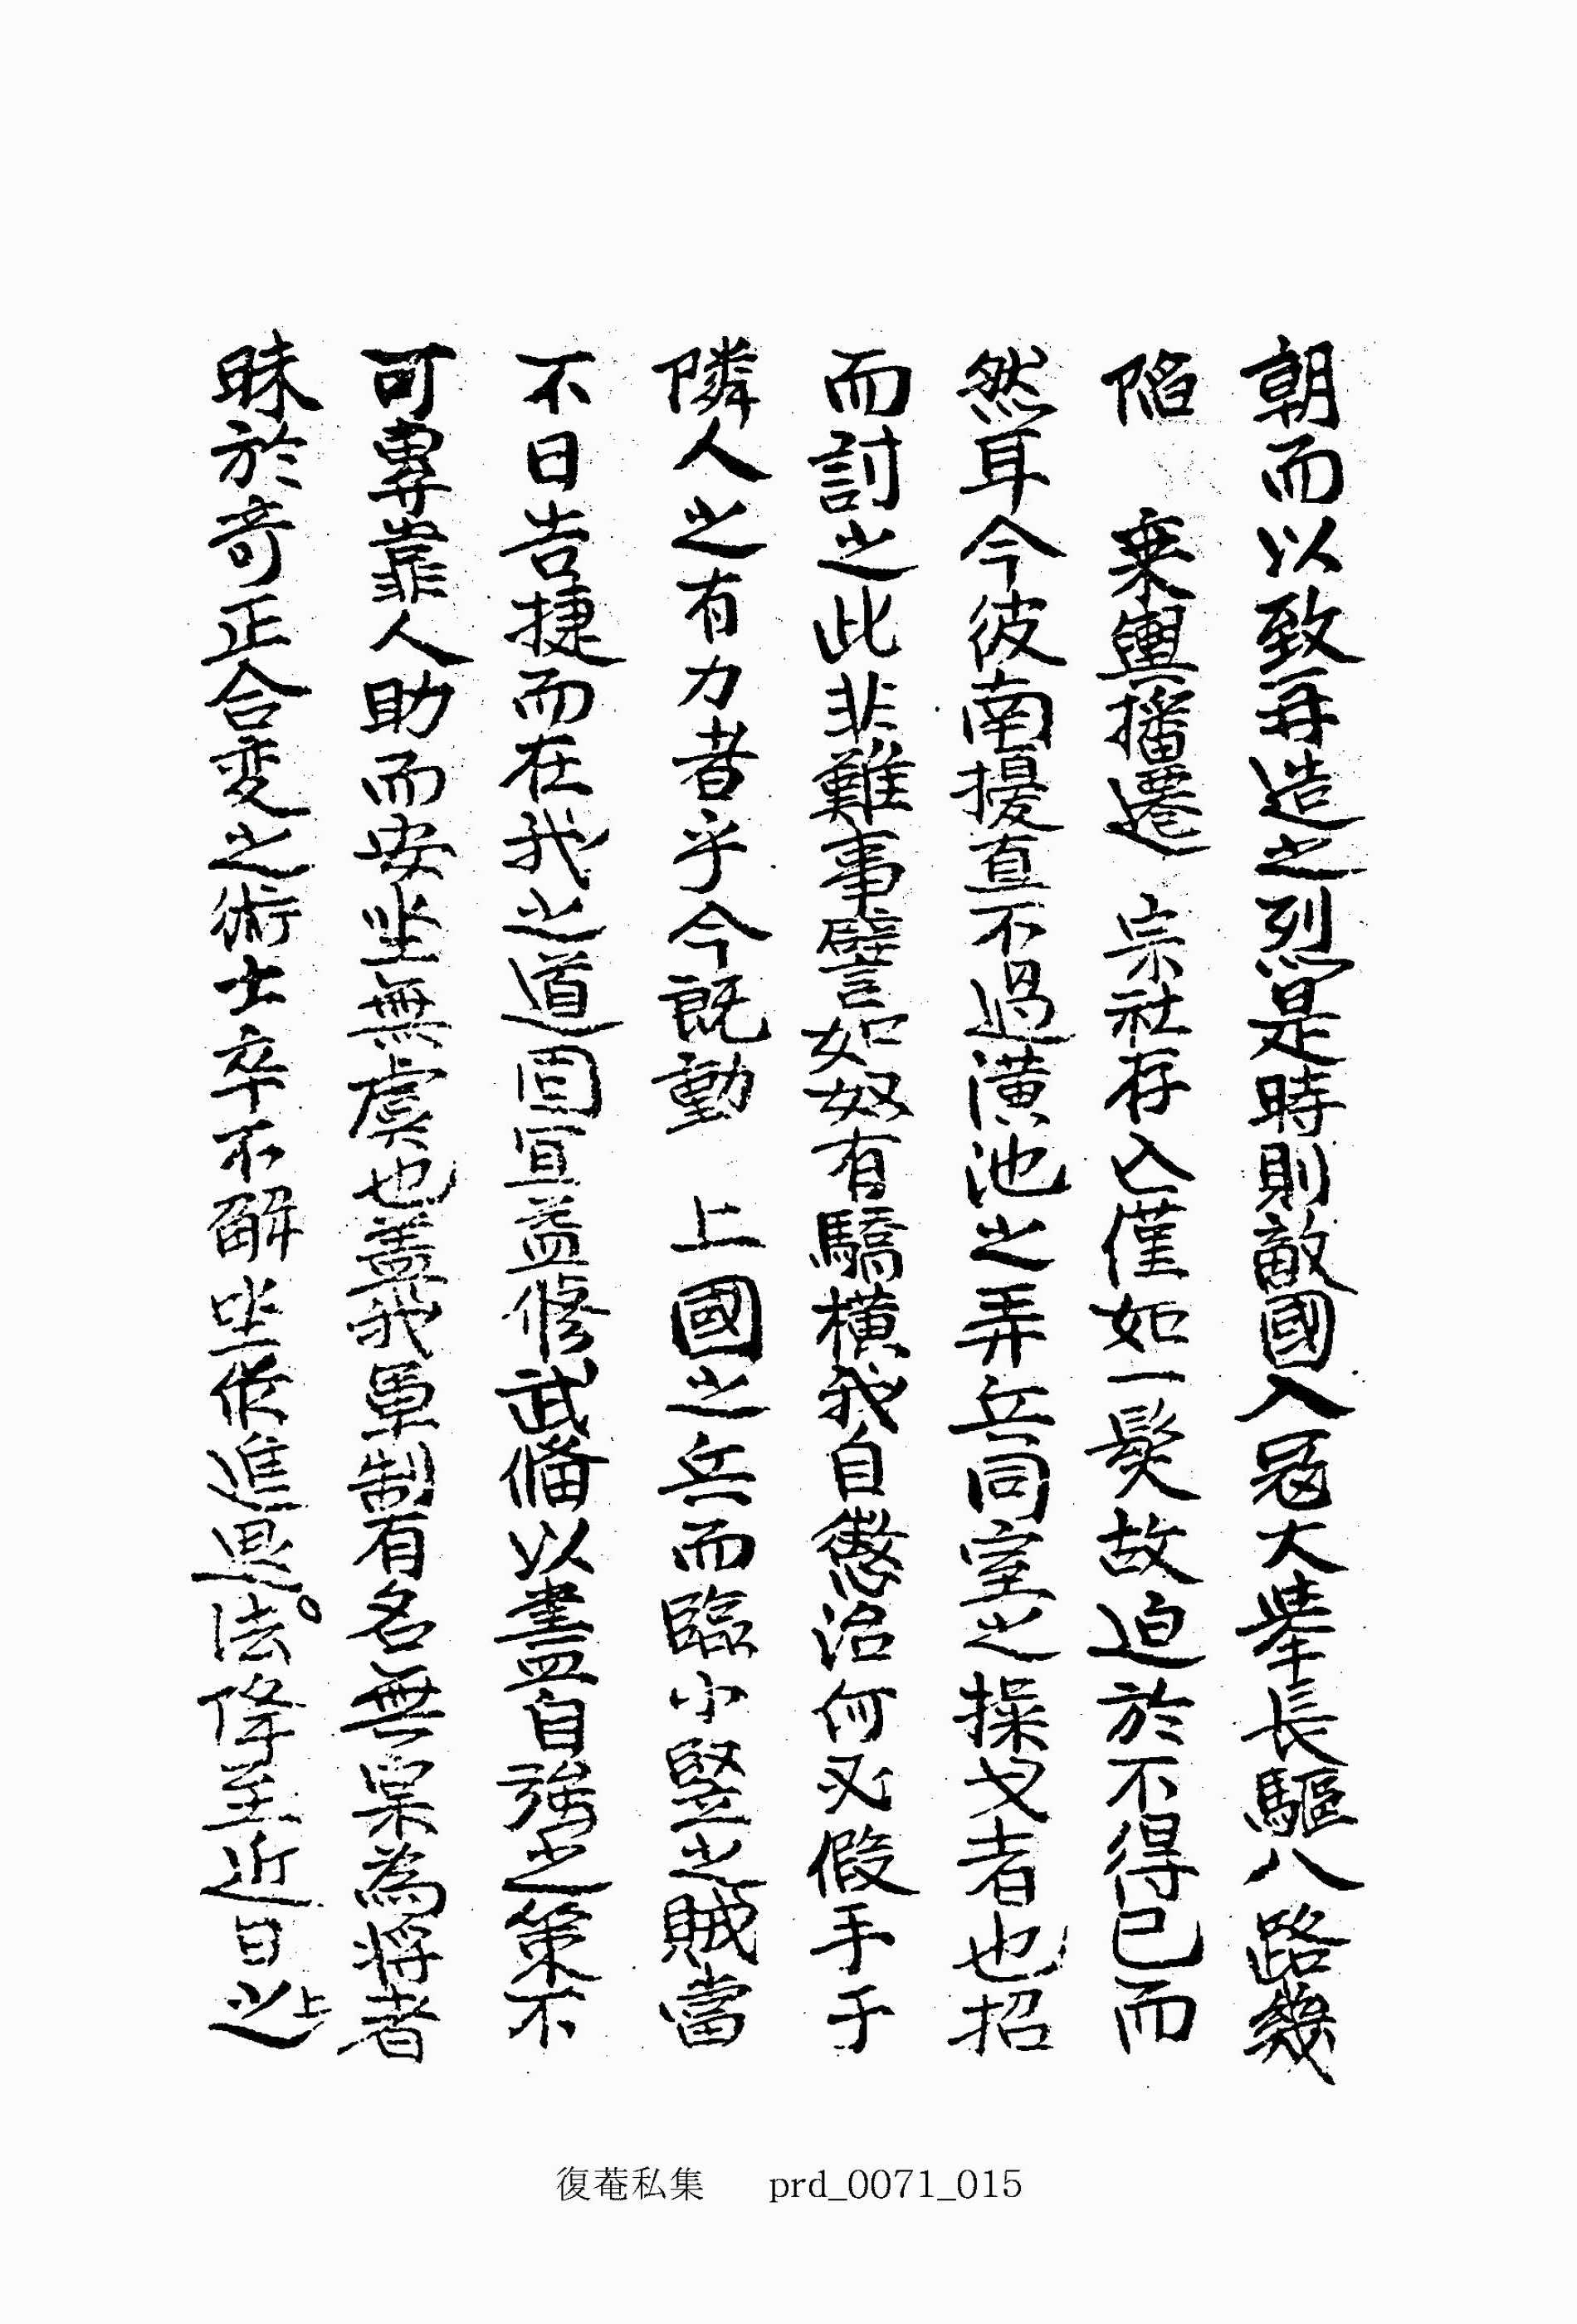 朝而以致再造之烈是時則敵國入冦大擧長驅八路幾
陷 乗輿播遷 宗社存亾僅如一髮故迫於不得已而
然耳今彼南擾直不過潢池之弄兵同室之操戈者也招
而討之此非難事譬如奴有驕橫我自懲治何必假手于
隣人之有力者乎今旣動 上國之兵而臨小竪之賊當
不日告捷而在我之道固宜益修武備以盡自強之策不
可專靠人助而安坐無虞也盖我軍制有名無杲為将者
昧於奇正合変之術士卒不解坐作進退。法降至近日之上
復菴私集 prd_0071_015